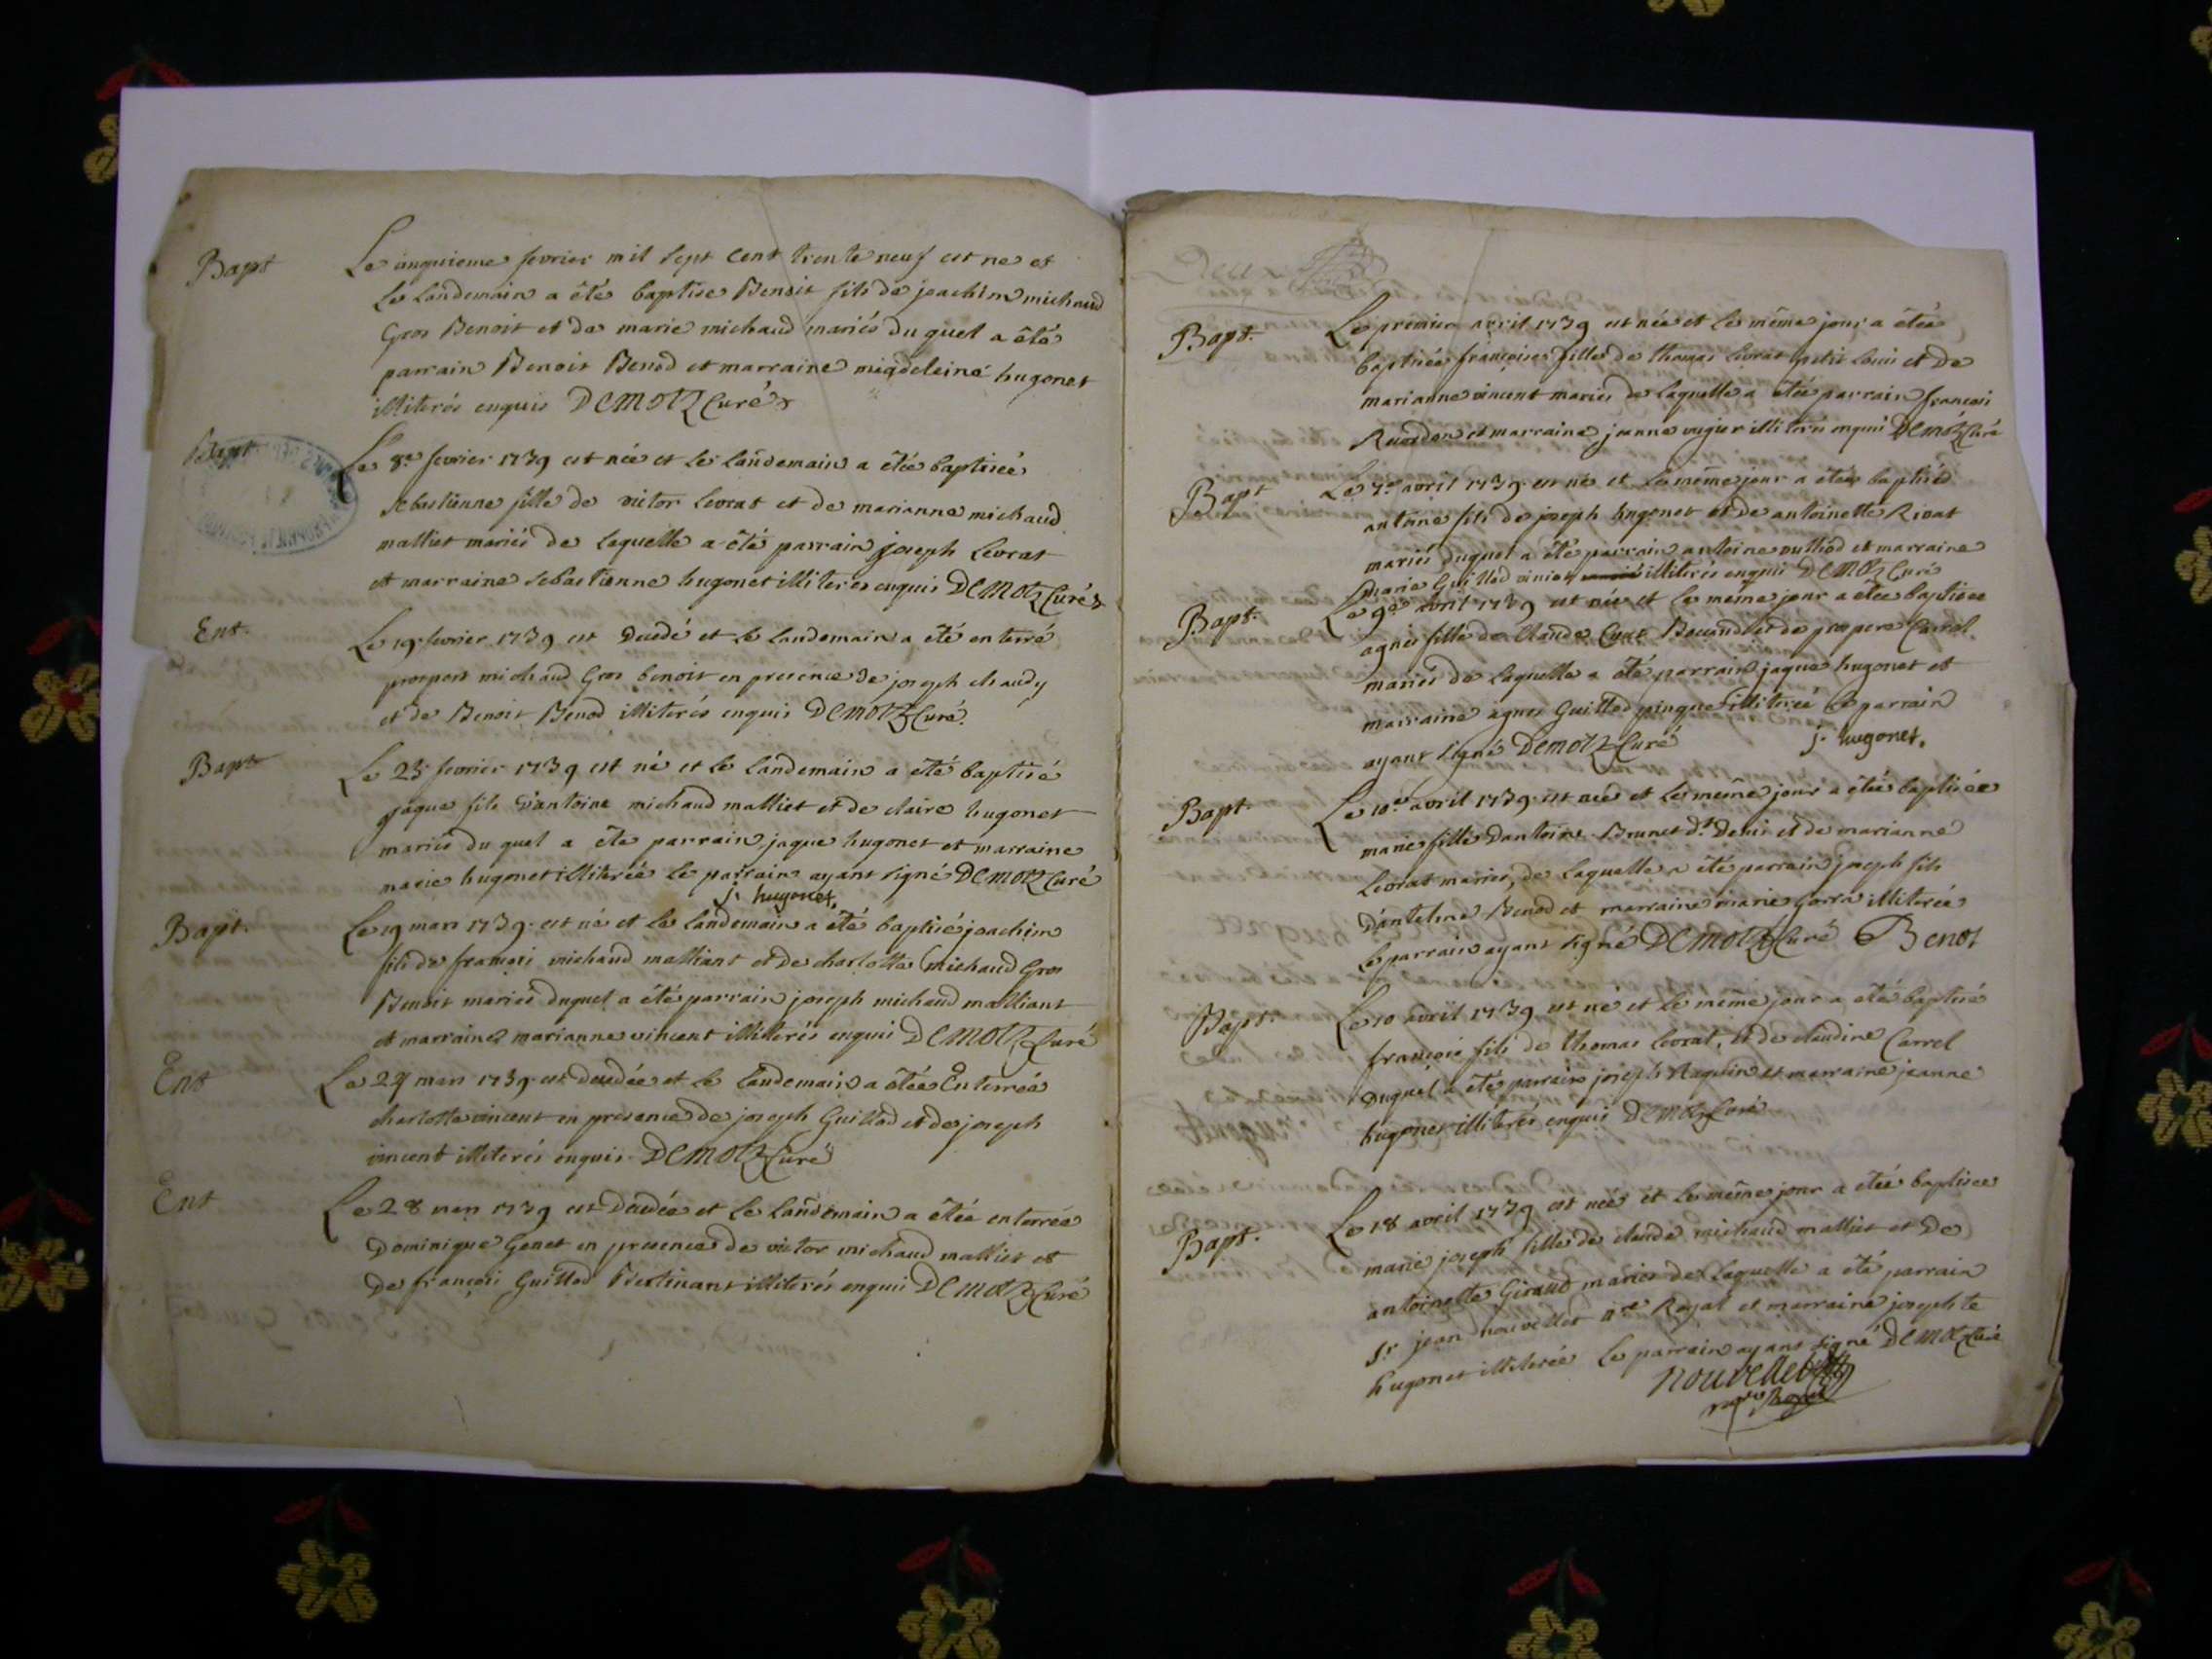 Bapt
Le cinquieme fevrier mil sept cent trente neuf est ne et
le landemain a été baptise Benoit fils de joachim michaud
Gros Benoit et de marie michaud mariés du quel a été
parrain Benoit Benod et marraine magdeleine hugonet
illiterés enquis DEMOTZ Curé
Bapt
Le 8e fevrier 1739 est née et le landemain a étée baptisée
sebastienne fille de victor levrat et de marianne michaud
malliet mariés de laquelle a été parrain joseph Levrat
et marraine sebastienne hugonet illiteres enquis DEMOTZ Curé
Ent.
Le 19 fevrier 1739 est Decedé et le landemain a été enterré
prospert michaud Gros benoit en presence de joseph chaudy
et de Benoit Benod illiterés enquis DEMOTZ Curé.
Bapt
Le 23 fevrier 1739 est né et le landemain a été baptisé
jaque fils d'antoine michaud malliet et de claire hugonet
mariés du quel a éte parrain jaque hugonet et marraine
marie hugonet illiterée le parrain ayant signé DEMOTZ Curé
j. hugonet.
Bapt.
Le 19 mars 1739 est né et le landemain a été baptisé joachim
fils de francois michaud malliant et de charlotte michaud Gros
Benoit mariés duquel a été parrain joseph michaud malliant
et marraine marianne vincent illiterés enquis DEMOTZ Curé
Ent
Le 24 mars 1739 est decedée et le landemain a étée Enterrée
charlotte vincent en presence de joseph Guillod et de joseph
vincent illiterés enquis DEMOTZ Curé
Ent
Le 28 mars 1739 est Decedée et le landemain a étée enterrée
Dominique Genet en presence de victor michaud malliet et
de françois Guillod illiterés enquis DEMOTZ Curé
Bapt.
Le premier avril 1739 est née et le même jour a étée
baptisée françoise fille de thomas levrat petit Louis et de
marianne vincent mariés de laquelle a étée parrain francois
et marraine jeanne vugier illiterés enquis DEMOTZ Curé
Bapt
Le 7e avril 1739 est né et le même jour a étés baptisé
antoine fils de joseph hugonet et de antoinette Rivat
mariés duquel a été parrain antoine vulliod et marraine
marie Guillod viniet illiterés enquis DEMOTZ Curé
Bapt.
Le 9e avril 1739 est née et le même jour a étée baptisee
agnes fille de Claude et de prospere Carrel
mariés de laquelle a été parrain jaque hugonet et
marraine agnes Guillod pinque illiterée le parrain
ayant signé DEMOTZ Curé j. hugonet.
Bapt.
Le 10e avril 1739 est née et le même jour a étée baptisée
marie fille Dantoine Brunet dt Denis et de marianne
levrat mariés, de laquelle a été parrain joseph fils
D'antelme Benod et marraine marie illiterée
le parrain ayant signé DEMOTZ Curé Benot
Bapt.
Le 10 avril 1739 est né et le même jour a été baptisé
françois fils de thomas levrat, et de claudine Carrel
Duquel a été parrain joseph Raquin et marraine jeanne
hugonet illiterés enquis DEMOTZ Curé
Bapt.
Le 18 avril 1739 est née et le même jour a étée baptisée
marie joseph fille de claude michaud malliet et De
antoinette Giraud mariés de laquelle a été parrain
Sr jean nouvellet nre Royal et marraine josephte
hugonet illiterée le parrain ayant signé DEMOTZ Curé
nouvellet
nre Royal